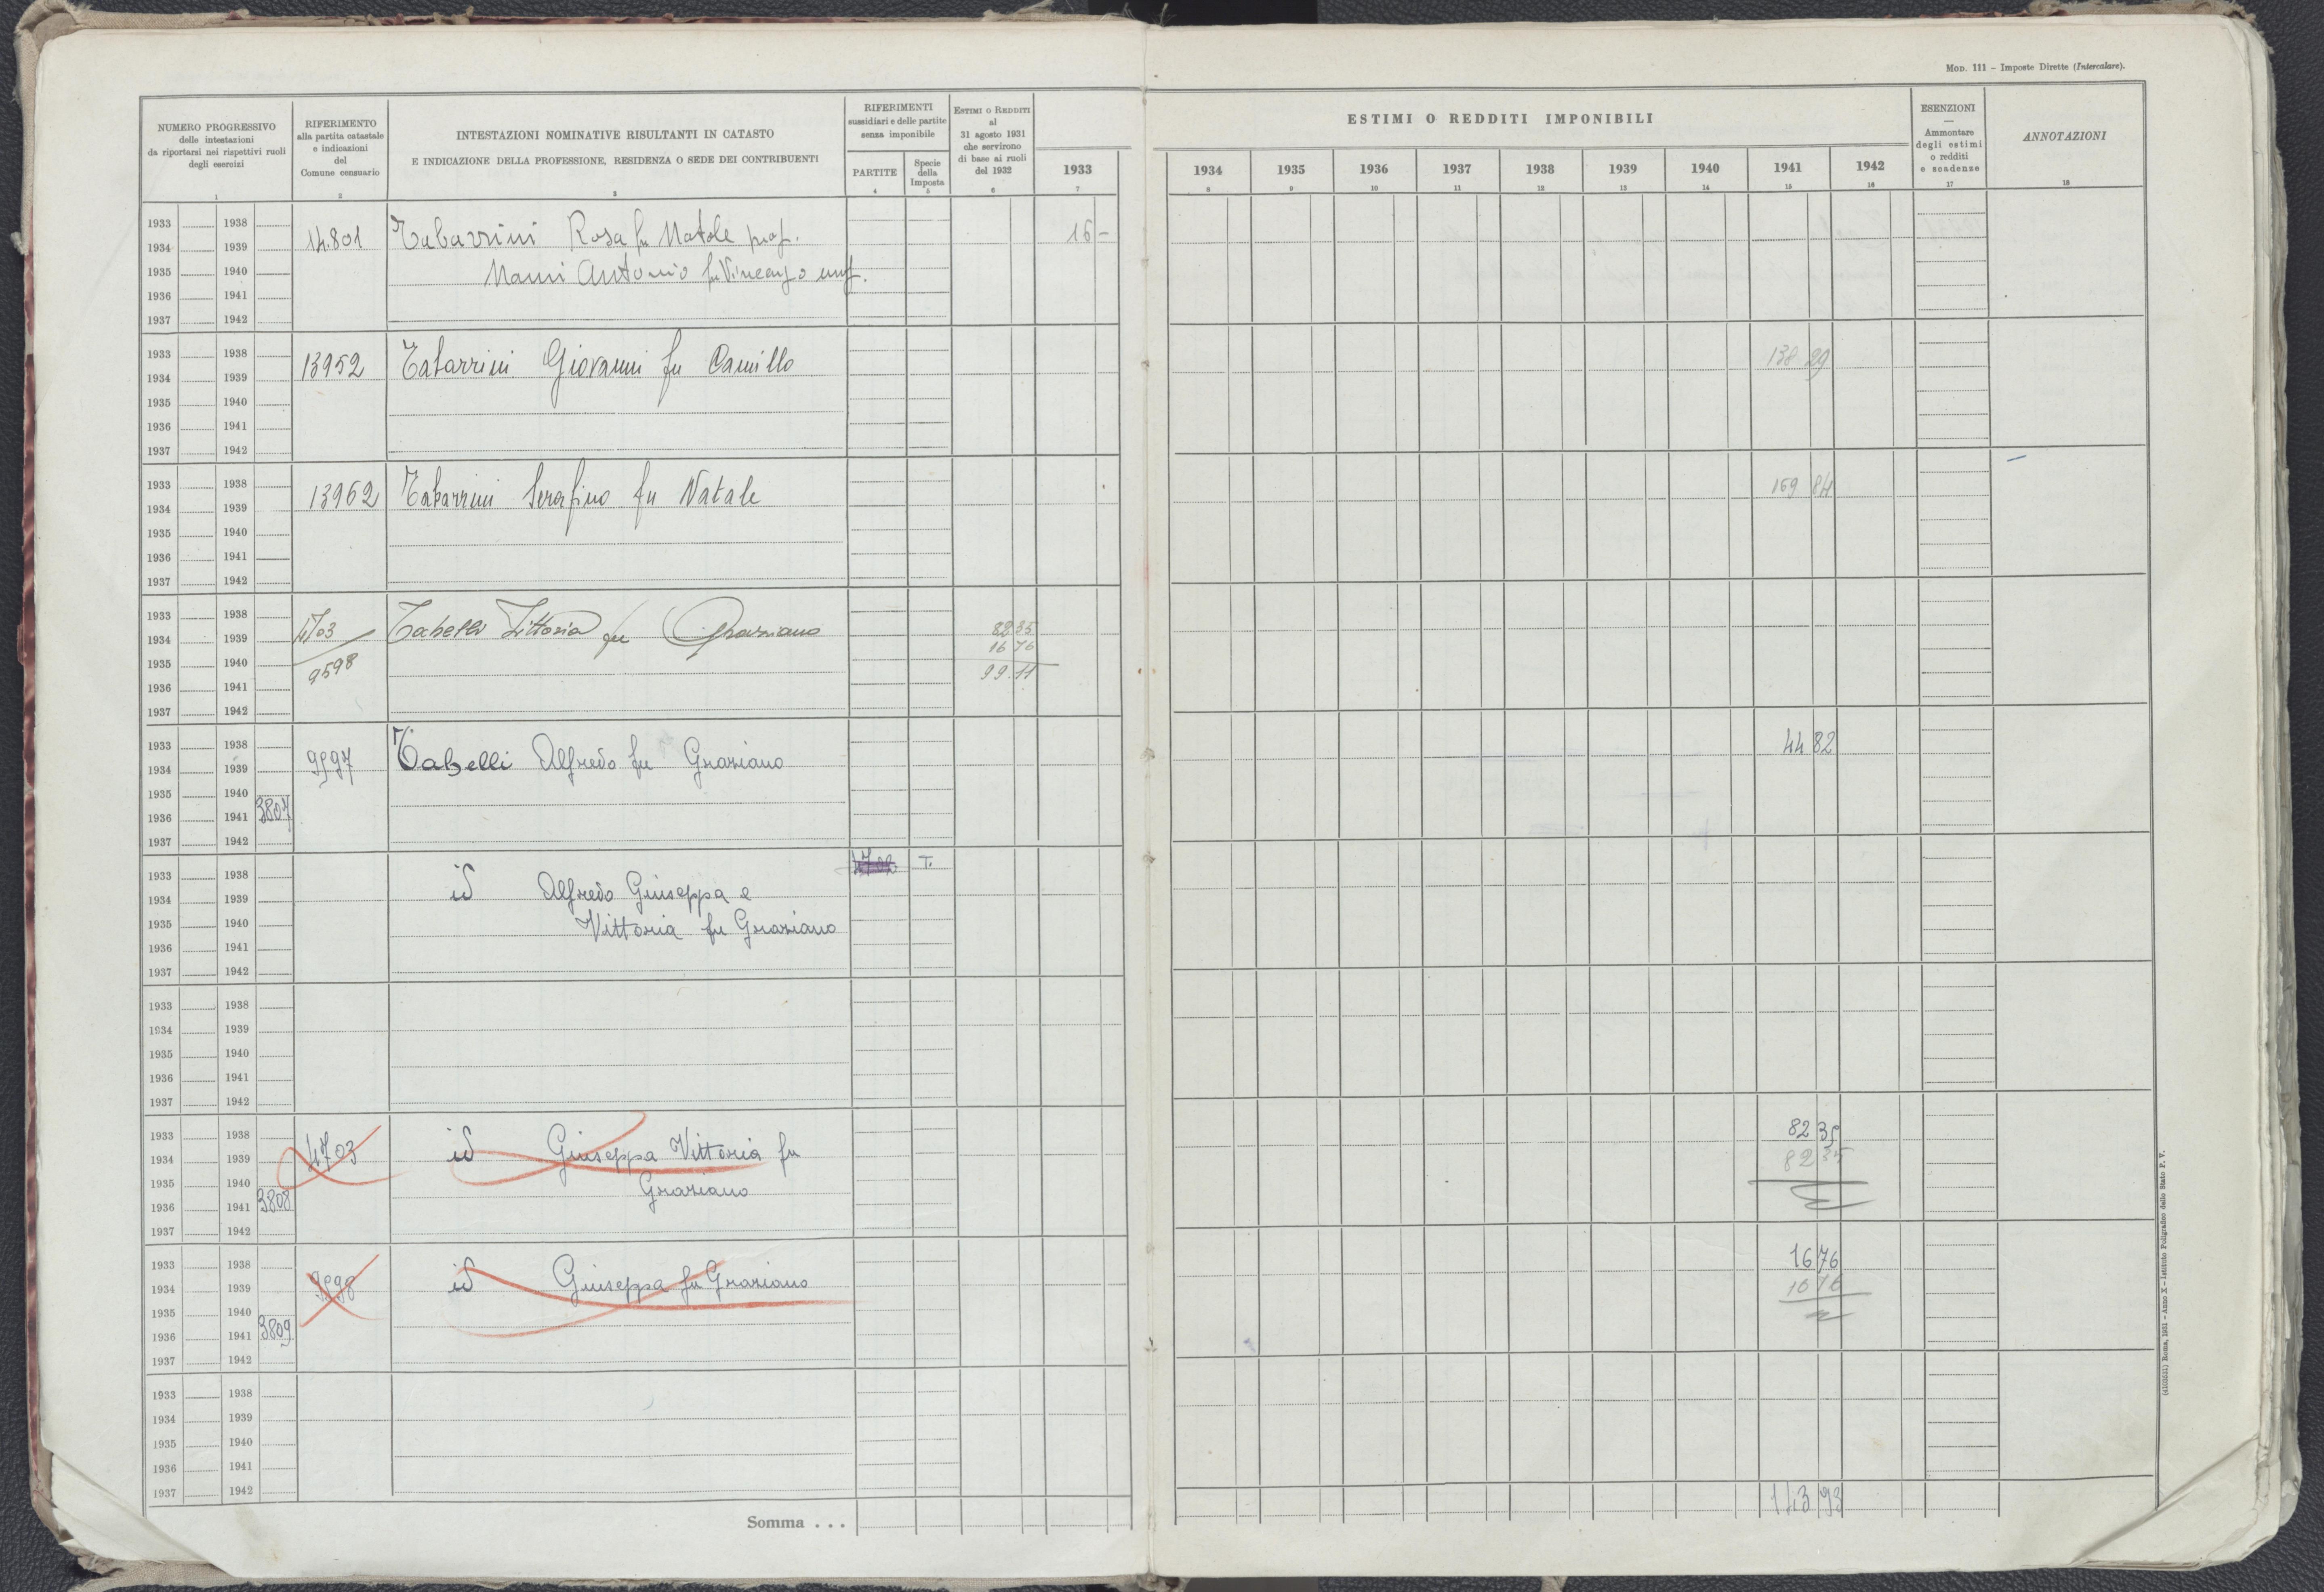 MOD. 111 – Imposte Dirette (Intercalare).
NUMERO PROGRESSIVO
delle intestazioni
da riportarsi nei rispettivi ruoli
degli esercizi
1
RIFERIMENTO
alla partita catastale
e indicazioni
del
Comune censuario
2
INTESTAZIONI NOMINATIVE RISULTANTI IN CATASTO
E INDICAZIONE DELLA PROFESSIONE, RESIDENZA O SEDE DEI CONTRIBUENTI
3
RIFERIMENTI
sussidiari e delle partite
senza imponibile
PARTITE
4
Specie
della
Imposta
5
ESTIMI O REDDITI
al
31 agosto 1931
che servirono
di base ai ruoli
del 1932
6
1933
7
ESTIMI O REDDITI IMPONIBILI
1934 1935 1936 1937 1938 1939 1940 1941 1942
8 9 10 11 12 13 14 15 16
ESENZIONI
—
Ammontare
degli estimi
o redditi
e scadenze
17
ANNOTAZIONI
18
1933 1938
1934 1939 14.801 Tabarrini Rosa fu Natale prop. 16 –
1935 1940 Nanni Antonio fu Vincenzo usuf.
1936 1941
1937 1942
1933 1938
1934 1939 13952 Tabarrini Giovanni fu Camillo 138 29
1935 1940
1936 1941
1937 1942
1933 1938
1934 1939 13962 Tabarrini Serafino fu Natale 169 84
1935 1940
1936 1941
1937 1942
1933 1938
1934 1939 4703 Tabelli Vittoria fu Graziano 82 35
16 76
1935 1940 9598 99.11
1936 1941
1937 1942
1933 1938
1934 1939 9597 Tabelli Alfredo fu Graziano 44 82
1935 1940
1936 1941 3807
1937 1942
1933 1938 T.
1934 1939 id Alfredo Giuseppa e
1935 1940 Vittoria fu Graziano
1936 1941
1937 1942
1933 1938
1934 1939
1935 1940
1936 1941
1937 1942
1933 1938 82 35
1934 1939 4703 id Giuseppa Vittoria fu 82 35
1935 1940 Graziano
1936 1941 3808
1937 1942
1933 1938 16 76
1934 1939 9598 id Giuseppa fu Graziano 16 76
1935 1940
1936 1941 3809
1937 1942
1933 1938
1934 1939
1935 1940
1936 1941
1937 1942
Somma . . . 143 93
(4103031) Roma, 1931 – Anno X – Istituto Poligrafico dello Stato P. V.